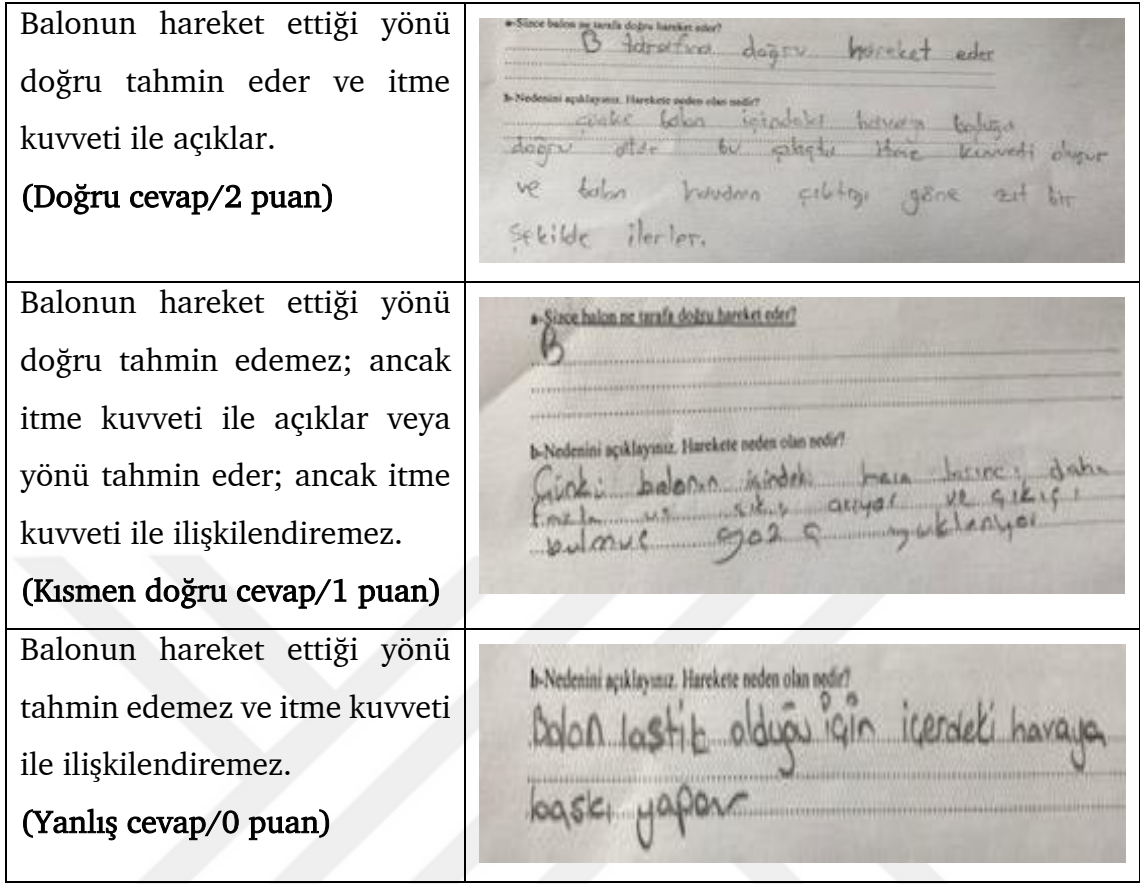 Balonun hareket ettiği yönü
doğru tahmin eder ve itme
kuvveti ile açıklar.
(Doğru cevap/2 puan)
a-Sizce balon ne tarafa doğru hareket eder?
B tarafına doğru hareket eder
b-Nedenini açıklayınız. Harekete neden olan nedir?
çünkü balon içindeki havayı
doğru bu itme kuvveti oluşur
ve balon havanın çıktığı yöne zıt bir
şekilde ilerler.
Balonun hareket ettiği yönü
doğru tahmin edemez; ancak
itme kuvveti ile açıklar veya
yönü tahmin eder; ancak itme
kuvveti ile ilişkilendiremez.
(Kısmen doğru cevap/1 puan)
a-Sizce balon ne tarafa doğru hareket eder?
B
b-Nedenini açıklayınız. Harekete neden olan nedir?
Çünkü balonun içindeki hava basıncı daha
fazla ve çıkış arıyor ve çıkışı
bulmuş
Balonun hareket ettiği yönü
tahmin edemez ve itme kuvveti
ile ilişkilendiremez.
(Yanlış cevap/0 puan)
b-Nedenini açıklayınız. Harekete neden olan nedir?
Balon lastik olduğu için içerdeki havaya
baskı yapar